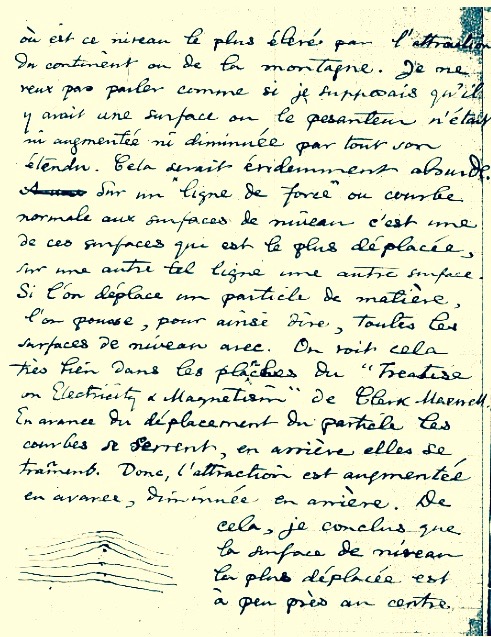 où est ce niveau le plus élevé par l'attraction
du continent ou de la montagne. Je ne
veux pas parler comme si je supposais qu'il
y avait une surface ou le pesanteur n'était
ni augmentée ni diminuée par tout son
étendu. Cela serait évidemment absurde.
Sur un "ligne de force" ou courbe
normale aux surfaces de niveau c'est une
de ces surfaces qui est le plus déplacée,
sur une autre tel ligne une autre surface.
Si l'on déplace un particle de matière,
l'on pousse, pour ainsi dire, toutes les
surfaces de niveau avec. On voit cela
très bien dans les planches du "Treatise
on Electricity & Magnetism" de Clerk Maxwell.
En avance du déplacement du particle les
courbes se serrent, en arrière elles se
traînent. Donc, l'attraction est augmentée
en avance, diminuée en arrière. De
cela, je conclus que
la surface de niveau
la plus déplacée est
à peu près au centre